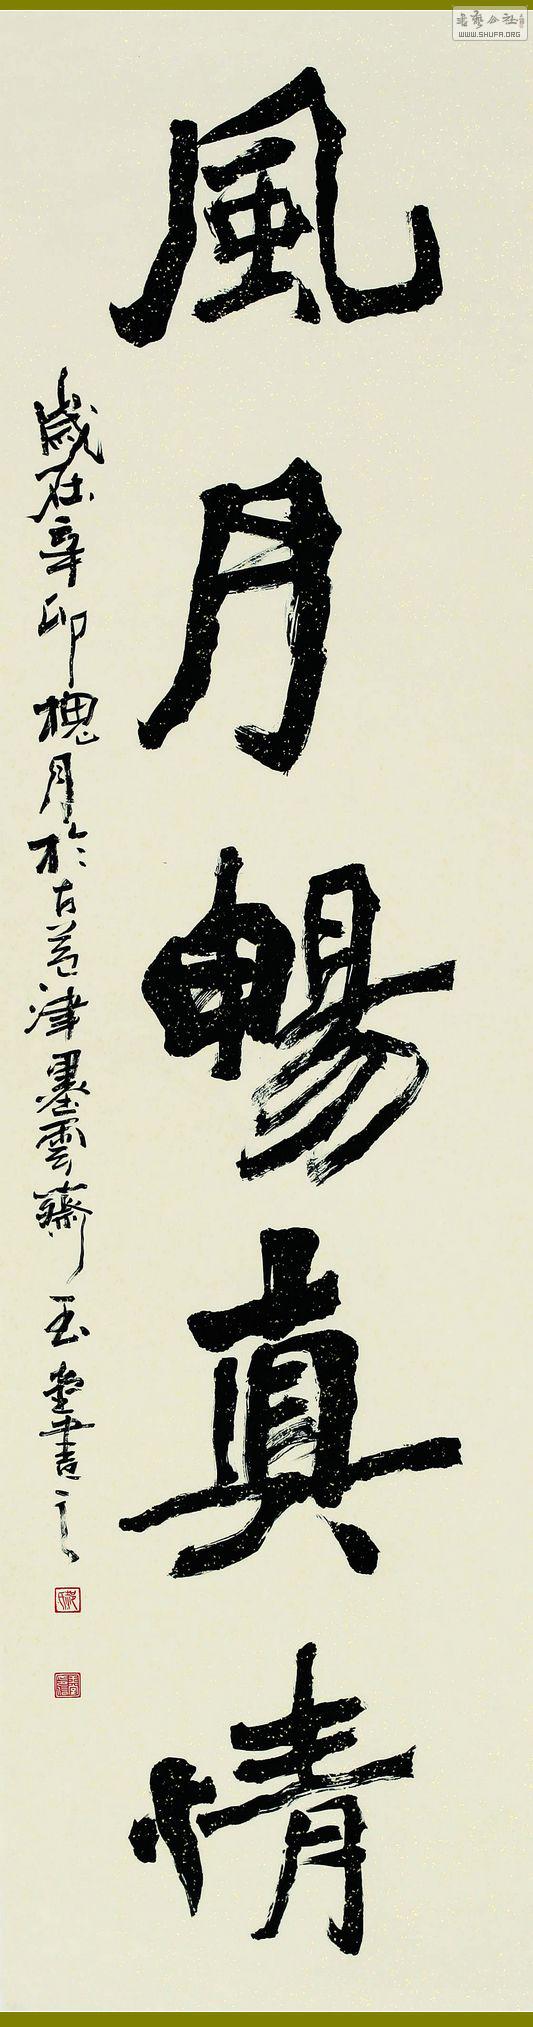 風月暢真情
歲在辛卯槐月於古孟津墨雲齋 玉堂書之
書藝公社
WWW.SHUFA.ORG